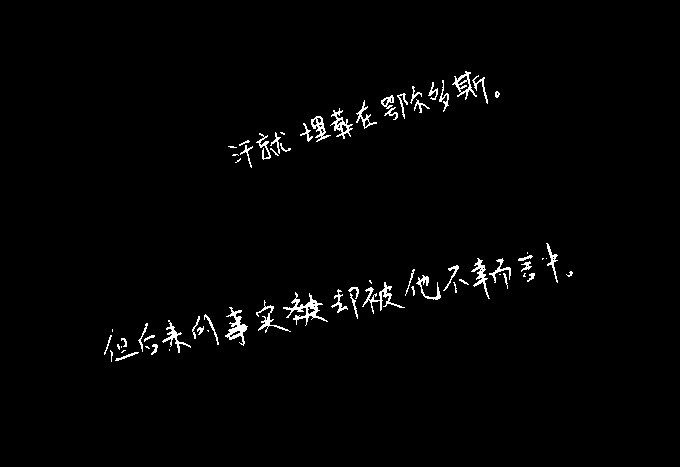 汗就埋葬在鄂尔多斯。
但后来的事实却被他不幸而言中。